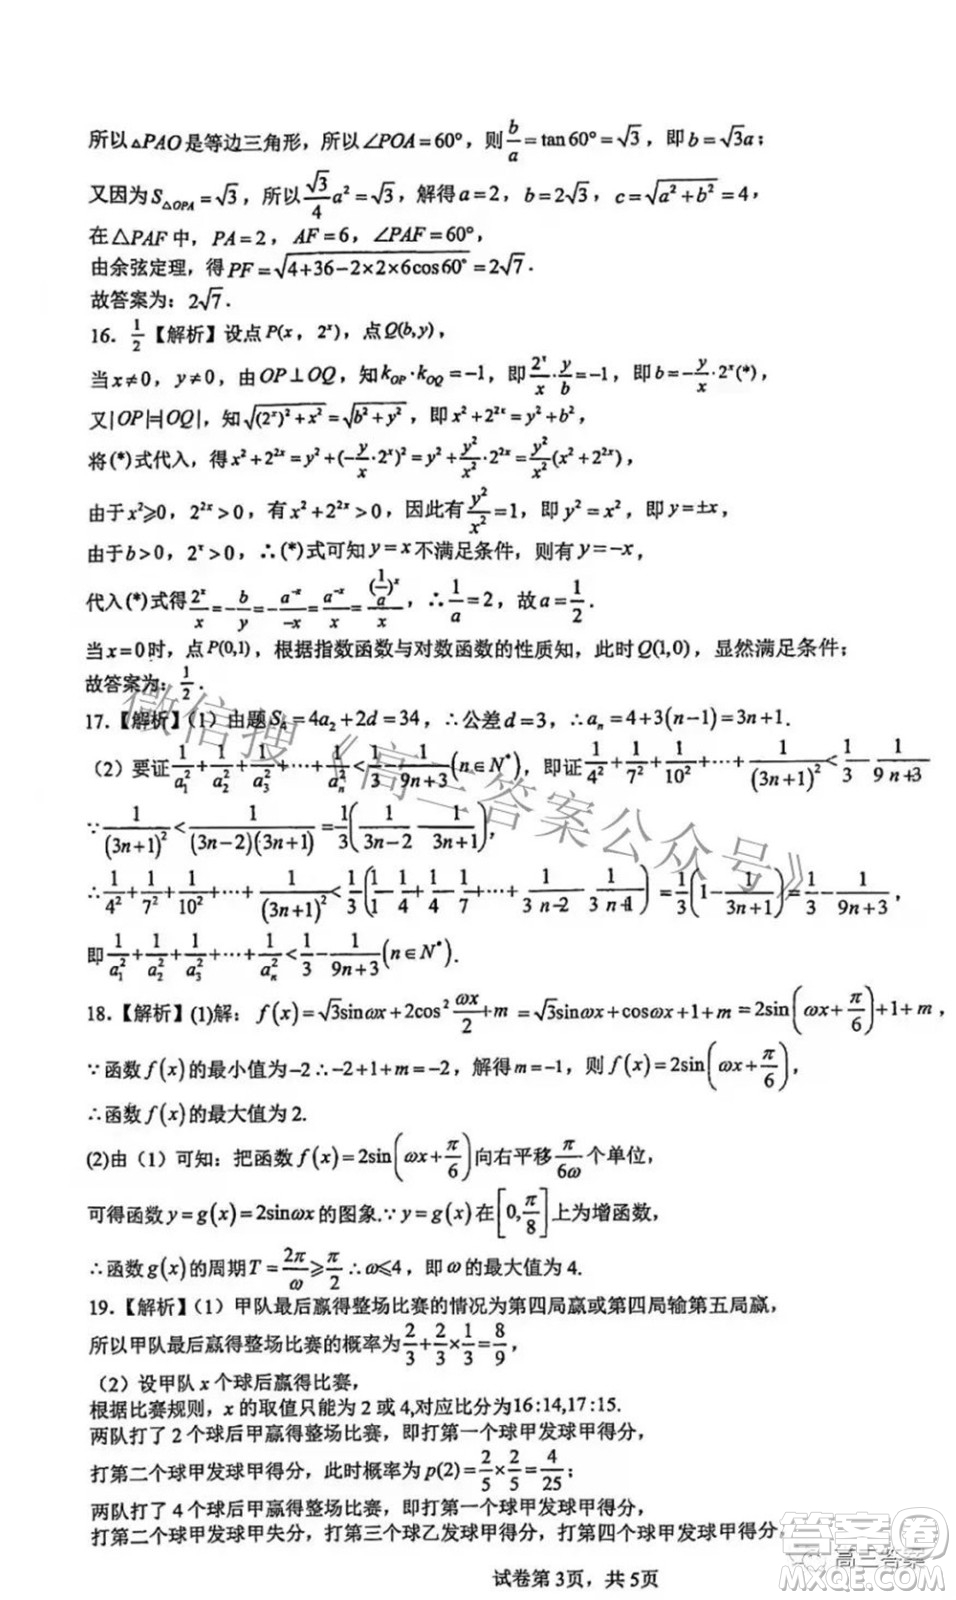 所以△PAO是等边三角形，所以∠POA=60°，则b/a=tan60°=√3，即b=√3a；
又因为S△OPA=√3，所以√3/4 a²=√3，解得a=2，b=2√3，c=√(a²+b²)=4，
在△PAF中，PA=2，AF=6，∠PAF=60°，
由余弦定理，得PF=√(4+36-2×2×6cos60°)=2√7．
故答案为：2√7．
16．1/2【解析】设点P(x，2ˣ)，点Q(b,y)，
当x≠0，y≠0，由OP⊥OQ，知k_OP·k_OQ=-1，即2ˣ/x·y/b=-1，即b=-y/x·2ˣ(*)，
又|OP|=|OQ|，知√((2ˣ)²+x²)=√(b²+y²)，即x²+2²ˣ=y²+b²，
将(*)式代入，得x²+2²ˣ=y²+(-y/x·2ˣ)²=y²+y²/x²·2²ˣ=y²/x²(x²+2²ˣ)，
由于x²⩾0，2²ˣ>0，有x²+2²ˣ>0，因此有y²/x²=1，即y²=x²，即y=±x，
由于b>0，2ˣ>0，∴(*)式可知y=x不满足条件，则有y=-x，
代入(*)式得2ˣ/x=-b/y=-a⁻ˣ/-x=a⁻ˣ/x=(1/a)ˣ/x，∴1/a=2，故a=1/2．
当x=0时，点P(0,1)，根据指数函数与对数函数的性质知，此时Q(1,0)，显然满足条件；
故答案为：1/2．
17．【解析】（1）由题S₄=4a₂+2d=34，∴公差d=3，∴aₙ=4+3(n-1)=3n+1．
（2）要证1/a₁²+1/a₂²+1/a₃²+⋯+1/aₙ²<1/3-1/(9n+3)(n∈N*)，即证1/4²+1/7²+1/10²+⋯+1/(3n+1)²<1/3-1/(9n+3)
∵1/(3n+1)²<1/((3n-2)(3n+1))=1/3(1/(3n-2) 1/(3n+1))，
∴1/4²+1/7²+1/10²+⋯+1/(3n+1)²<1/3(1/1-1/4+1/4-1/7+⋯+1/(3n-2) 1/(3n+1))=1/3(1-1/(3n+1))=1/3-1/(9n+3)，
即1/a₁²+1/a₂²+1/a₃²+⋯+1/aₙ²<1/3-1/(9n+3)(n∈N*)．
18．【解析】(1)解：f(x)=√3sinωx+2cos²ωx/2+m=√3sinωx+cosωx+1+m=2sin(ωx+π/6)+1+m，
∵函数f(x)的最小值为-2∴-2+1+m=-2，解得m=-1，则f(x)=2sin(ωx+π/6)，
∴函数f(x)的最大值为2.
(2)由（1）可知：把函数f(x)=2sin(ωx+π/6)向右平移π/6ω个单位，
可得函数y=g(x)=2sinωx的图象.∵y=g(x)在[0,π/8]上为增函数，
∴函数g(x)的周期T=2π/ω⩾π/2∴ω⩽4，即ω的最大值为4.
19．【解析】（1）甲队最后赢得整场比赛的情况为第四局赢或第四局输第五局赢，
所以甲队最后赢得整场比赛的概率为2/3+2/3×1/3=8/9，
（2）设甲队x个球后赢得比赛，
根据比赛规则，x的取值只能为2或4,对应比分为16:14,17:15.
两队打了2个球后甲赢得整场比赛，即打第一个球甲发球甲得分，
打第二个球甲发球甲得分，此时概率为p(2)=2/5×2/5=4/25；
两队打了4个球后甲赢得整场比赛，即打第一个球甲发球甲得分，
打第二个球甲发球甲失分，打第三个球乙发球甲得分，打第四个球甲发球甲得分，
试卷第3页，共5页
微信搜《高三答案公众号》
答案卷
高三答案